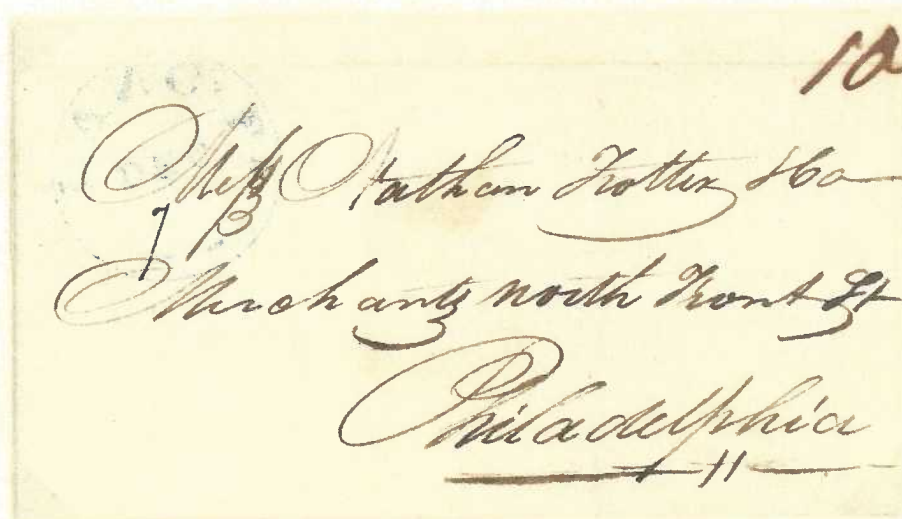 10
Messrs Nathan Trotter & Co
7
Merchants north Front St
Philadelphia